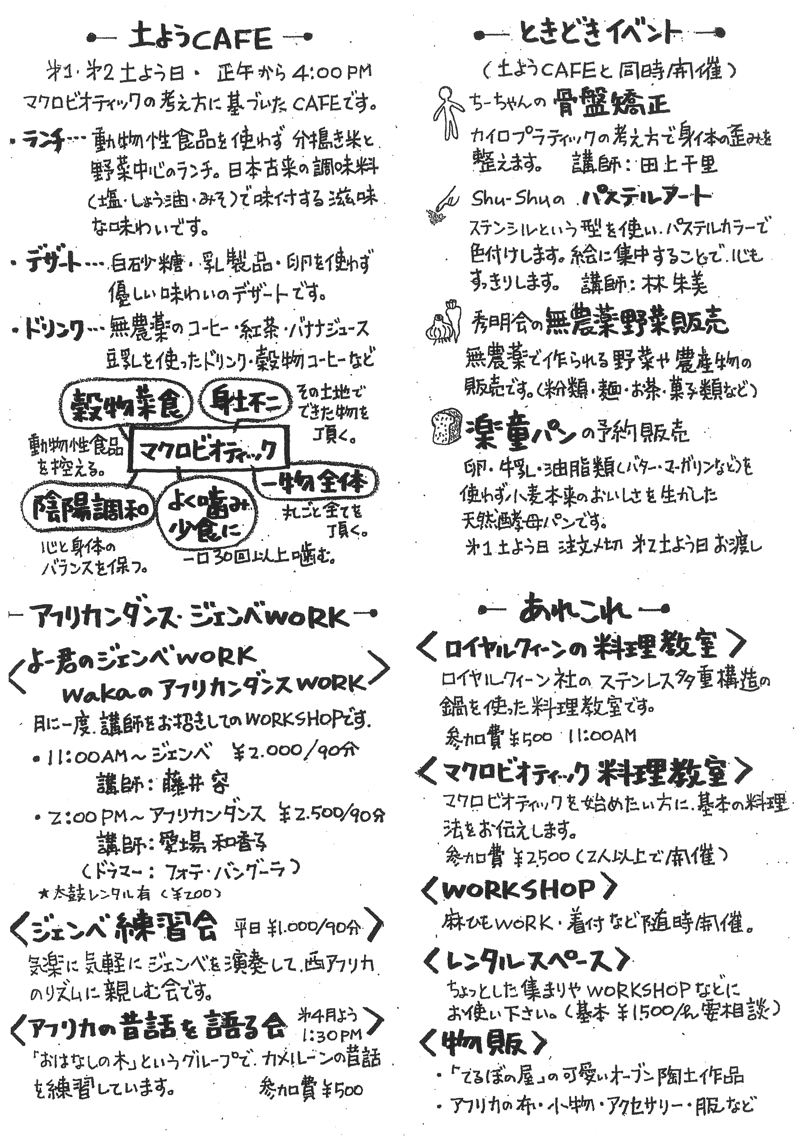 土ようCAFE
第1・第2土よう日・正午から4:00PM
マクロビオティックの考え方に基づいたCAFEです。
・ランチ…動物性食品を使わず分搗き米と
野菜中心のランチ。日本古来の調味料
(塩・しょう油・みそ)で味付する滋味
な味わいです。
・デザート…白砂糖・乳製品・卵を使わず
優しい味わいのデザートです。
・ドリンク…無農薬のコーヒー・紅茶・バナナジュース
豆乳を使ったドリンク・穀物コーヒーなど
穀物菜食
身土不二
その土地で
できた物を
頂く。
動物性食品
を控える。
マクロビオティック
陰陽調和
よく噛み
少食に
一物全体
丸ごと全てを
頂く。
心と身体の
バランスを保つ。
一口30回以上噛む。
アフリカンダンス・ジェンベWORK
〈よー君のジェンベWORK
wakaのアフリカンダンスWORK〉
月に一度、講師をお招きしてのWORKSHOPです。
・11:00AM～ジェンベ ¥2.000/90分
講師:藤井容
・2:00PM～アフリカンダンス ¥2.500/90分
講師:愛場和香子
(ドラマー:フォテ・バングーラ)
★太鼓レンタル有(¥200)
〈ジェンベ練習会 平日¥1.000/90分〉
気楽に気軽にジェンベを演奏して、西アフリカ
のリズムに親しむ会です。
〈アフリカの昔話を語る会 第4月よう 1:30PM〉
「おはなしの木」というグループで、カメルーンの昔話
を練習しています。 参加費¥500
ときどきイベント
(土ようCAFEと同時開催)
ちーちゃんの骨盤矯正
カイロプラティックの考え方で身体の歪みを
整えます。 講師:田上千里
Shu-Shuのパステルアート
ステンシルという型を使い、パステルカラーで
色付けします。絵に集中することで、心も
すっきりします。 講師:林朱美
秀明会の無農薬野菜販売
無農薬で作られる野菜や農産物の
販売です。(粉類・麺・お茶・菓子類など)
楽童パンの予約販売
卵・牛乳・油脂類(バター・マーガリンなど)を
使わず小麦本来のおいしさを生かした
天然酵母パンです。
第1土よう日 注文〆切 第2土よう日お渡し
あれこれ
〈ロイヤルクィーンの料理教室〉
ロイヤルクィーン社のステンレス多重構造の
鍋を使った料理教室です。
参加費¥500 11:00AM
〈マクロビオティック料理教室〉
マクロビオティックを始めたい方に、基本の料理
法をお伝えします。
参加費¥2,500(2人以上で開催)
〈WORKSHOP〉
麻ひもWORK・着付など随時開催。
〈レンタルスペース〉
ちょっとした集まりやWORKSHOPなどに
お使い下さい。(基本¥1500/h、要相談)
〈物販〉
・「でるぼの屋」の可愛いオーブン陶土作品
・アフリカの布・小物・アクセサリー・服など